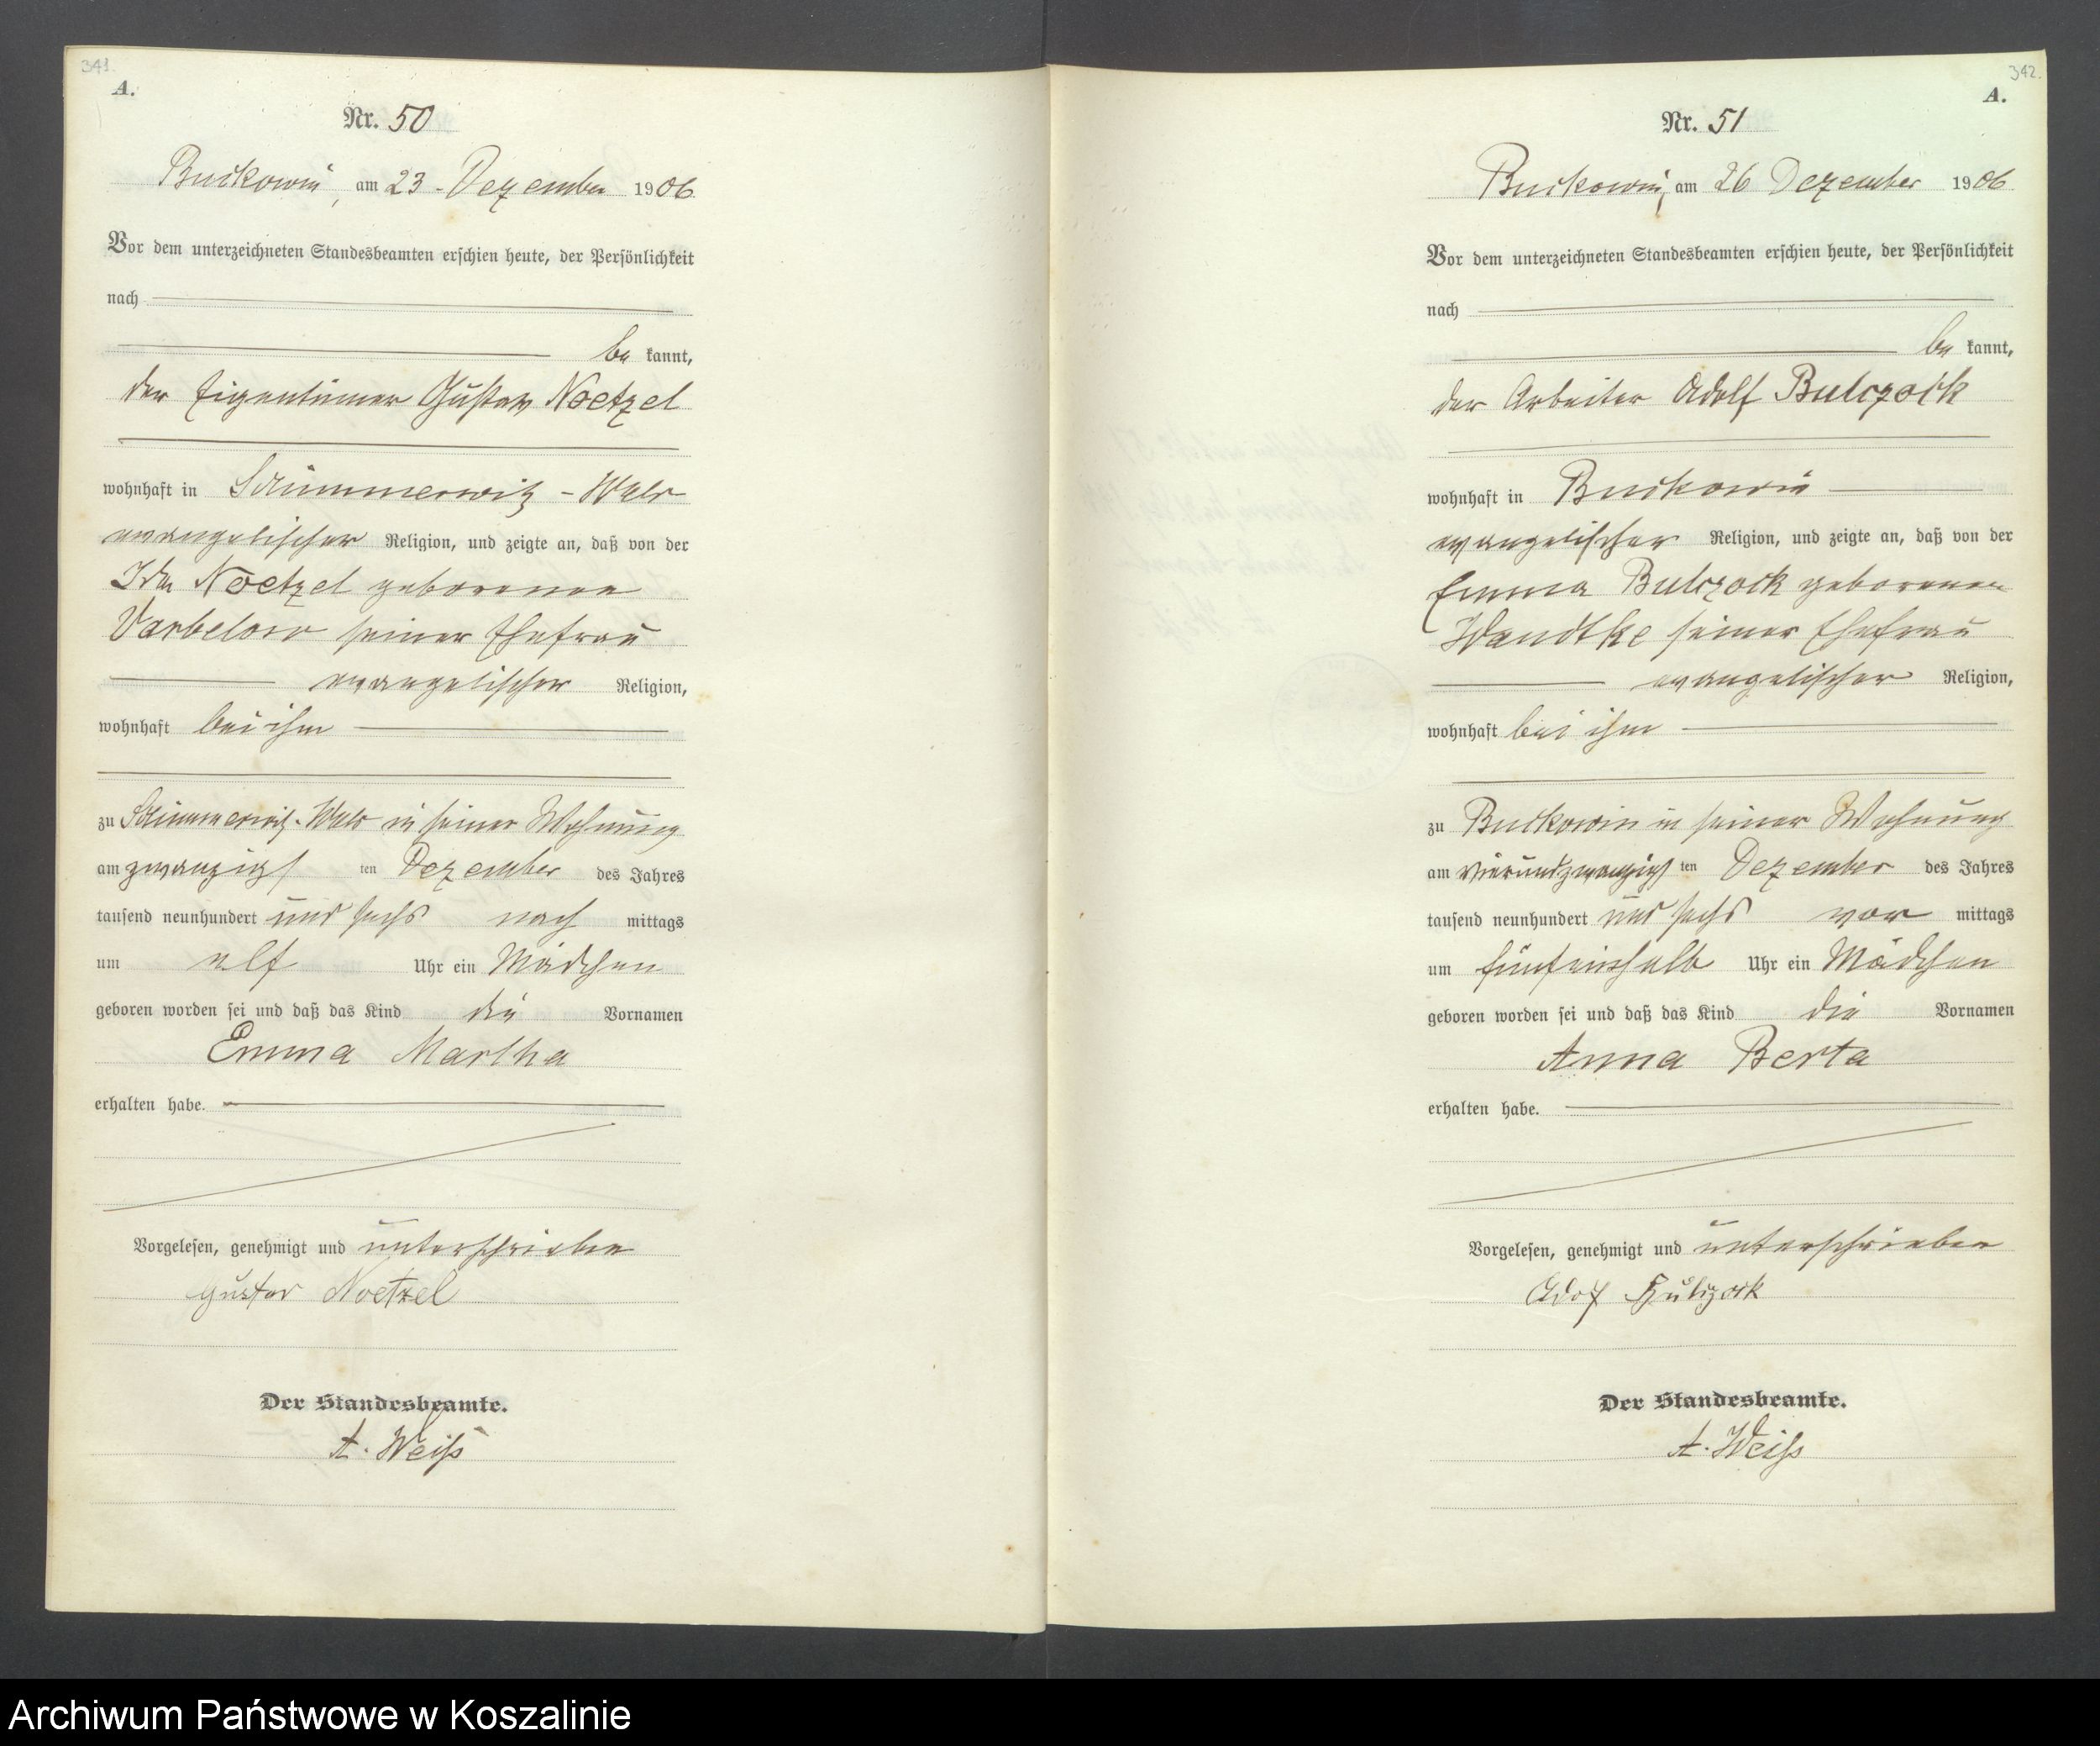 341.
A.
Nr. 50
Buckowin, am 23. Dezember 1906
Vor dem unterzeichneten Standesbeamten erschien heute, der Persönlichkeit
nach
be kannt,
der Eigentümer Gustav Noetzel
wohnhaft in Schimmerwitz - Wald
evangelischer Religion, und zeigte an, daß von der
Ida Noetzel geborenen
Varbelow seiner Ehefrau
evangelischer Religion,
wohnhaft bei ihm
zu Schimmerwitz-Wald in seiner Wohnung
am zwanzigs ten Dezember des Jahres
tausend neunhundert und sechs nach mittags
um elf Uhr ein Mädchen
geboren worden sei und daß das Kind die Vornamen
Emma Martha
erhalten habe.
Vorgelesen, genehmigt und unterschrieben
Gustav Noetzel
Der Standesbeamte.
A. Weiß
342.
A.
Nr. 51
Buckowin, am 26 Dezember 1906
Vor dem unterzeichneten Standesbeamten erschien heute, der Persönlichkeit
nach
be kannt,
der Arbeiter Adolf Bulczock
wohnhaft in Buckowin
evangelischer Religion, und zeigte an, daß von der
Emma Bulczock geborenen
Wandtke seiner Ehefrau
evangelischer Religion,
wohnhaft bei ihm
zu Buckowin in seiner Wohnung
am vierundzwanzigs ten Dezember des Jahres
tausend neunhundert und sechs vor mittags
um fünfeinhalb Uhr ein Mädchen
geboren worden sei und daß das Kind die Vornamen
Anna Berta
erhalten habe.
Vorgelesen, genehmigt und unterschrieben
Adolf Bulczock
Der Standesbeamte.
A. Weiß
Archiwum Państwowe w Koszalinie